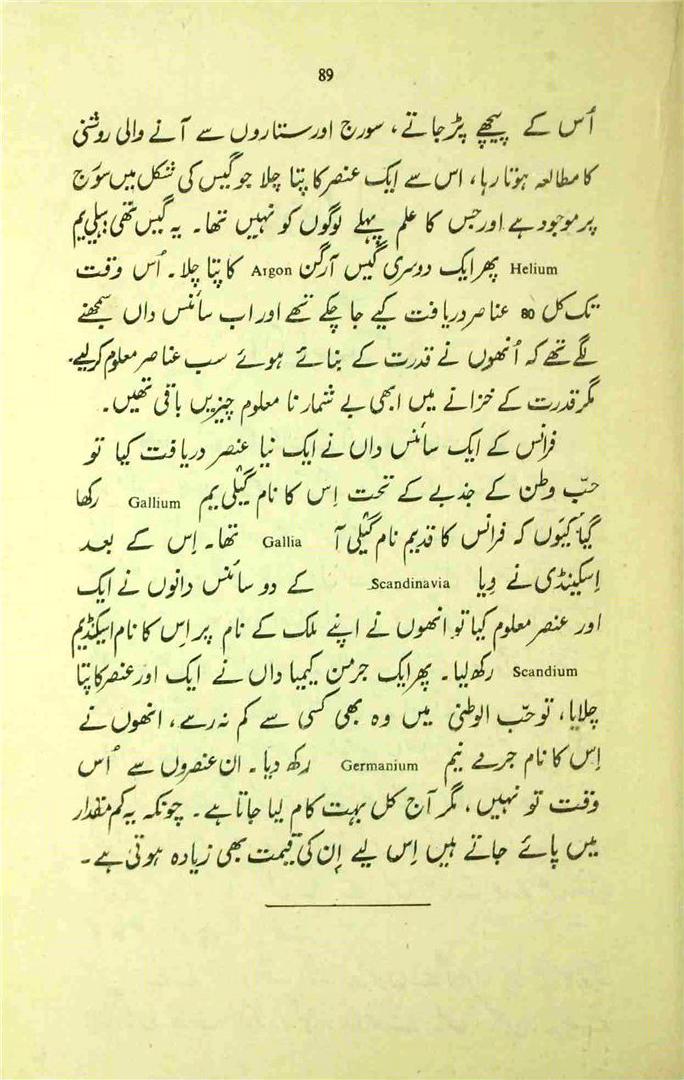 89
اُس کے پیچھے پڑ جاتے، سورج اور ستاروں سے آنے والی روشنی
کا مطالعہ ہوتا رہا، اس سے ایک عنصر کا پتا چلا جو گیس کی شکل میں سورج
پر موجود ہے اور جس کا علم پہلے لوگوں کو نہیں تھا۔ یہ گیس تھی ہیلی یم
Helium پھر ایک دوسری گیس آرگن Argon کا پتا چلا۔ اُس وقت
تک کل 80 عناصر دریافت کیے جا چکے تھے اور اب سائنس داں سمجھنے
لگے تھے کہ اُنھوں نے قدرت کے بنائے ہوئے سب عناصر معلوم کر لیے۔
مگر قدرت کے خزانے میں ابھی بے شمار نا معلوم چیزیں باقی تھیں۔
فرانس کے ایک سائنس داں نے ایک نیا عنصر دریافت کیا تو
حبّ وطن کے جذبے کے تحت اِس کا نام گیلی یم Gallium رکھا
گیا کیوں کہ فرانس کا قدیم نام گیلی آ Gallia تھا۔ اِس کے بعد
اِسکینڈی نے وِیا Scandinavia کے دو سائنس دانوں نے ایک
اور عنصر معلوم کیا تو انھوں نے اپنے ملک کے نام پر اِس کا نام اسکنڈیم
Scandium رکھ لیا۔ پھر ایک جرمن کیمیا داں نے ایک اور عنصر کا پتا
چلایا، تو حبّ الوطنی میں وہ بھی کسی سے کم نہ رہے، انھوں نے
اِس کا نام جرمے نیم Germanium رکھ دیا۔ ان عنصروں سے اُس
وقت تو نہیں، مگر آج کل بہت کام لیا جاتا ہے۔ چونکہ یہ کم مقدار
میں پائے جاتے ہیں اِس لیے اِن کی قیمت بھی زیادہ ہوتی ہے۔